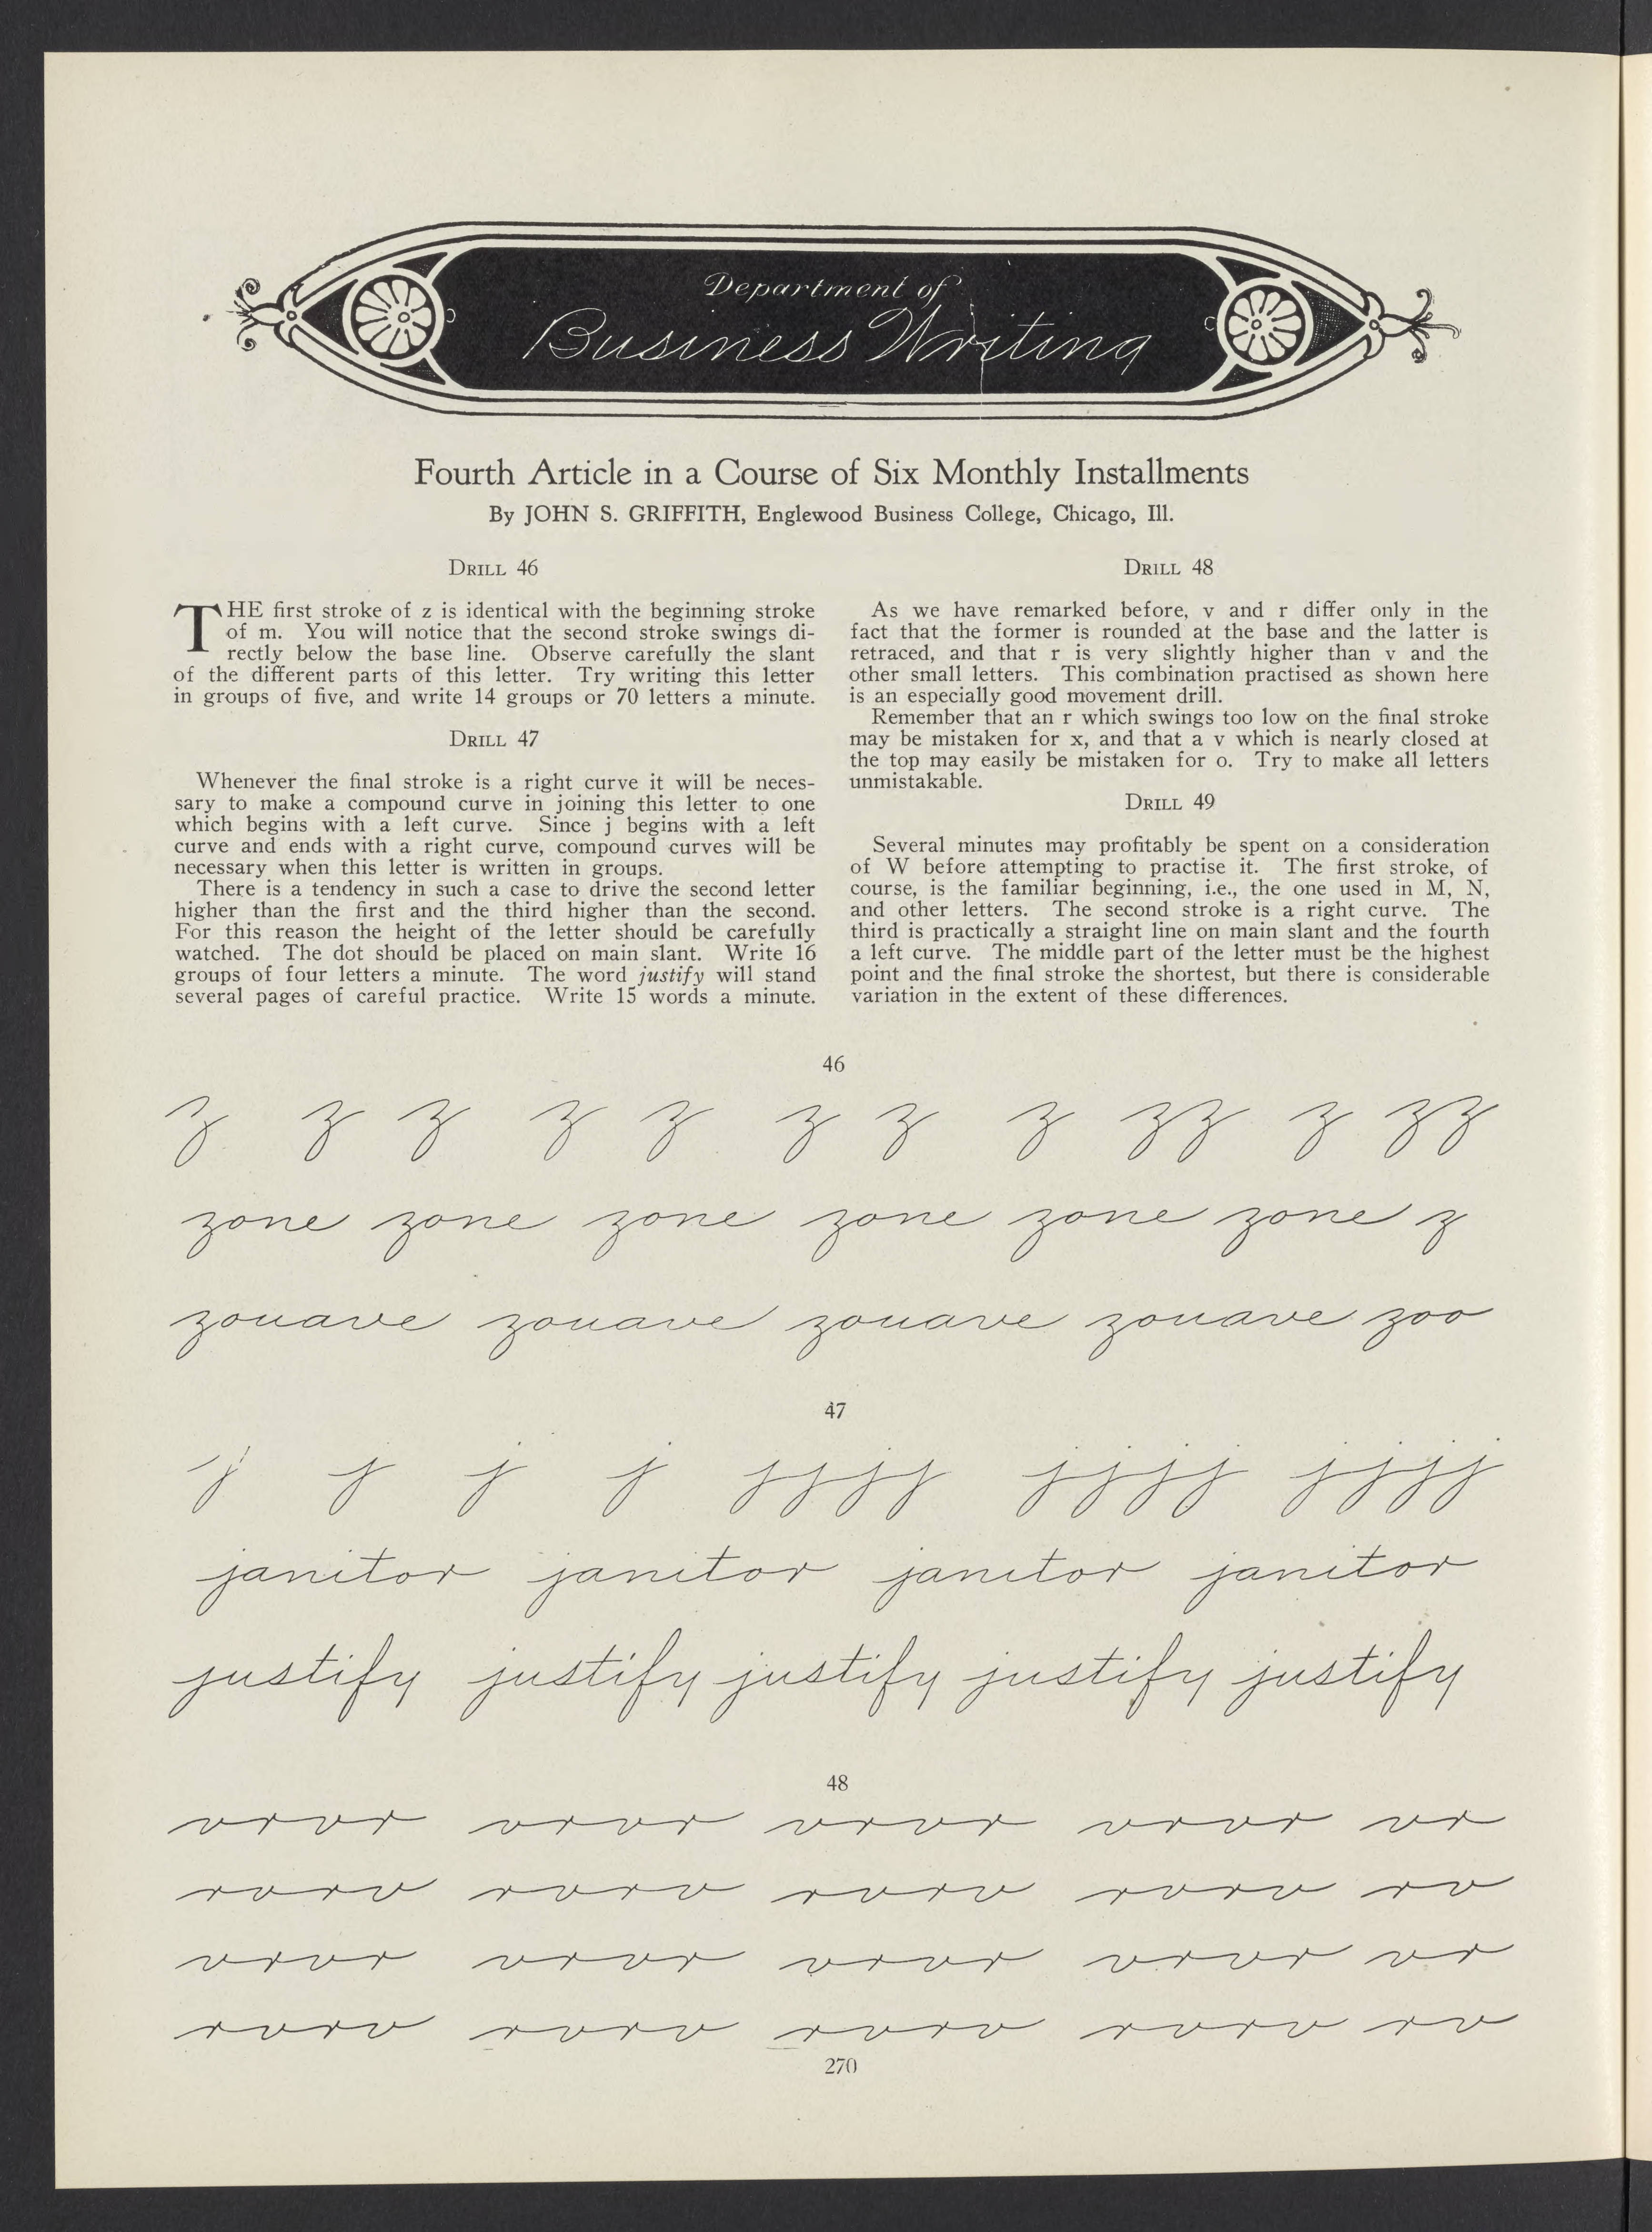 Department of
Business Writing
Fourth Article in a Course of Six Monthly Installments
By JOHN S. GRIFFITH, Englewood Business College, Chicago, Ill.
DRILL 46
THE first stroke of z is identical with the beginning stroke
of m. You will notice that the second stroke swings di-
rectly below the base line. Observe carefully the slant
of the different parts of this letter. Try writing this letter
in groups of five, and write 14 groups or 70 letters a minute.
DRILL 47
Whenever the final stroke is a right curve it will be neces-
sary to make a compound curve in joining this letter to one
which begins with a left curve. Since j begins with a left
curve and ends with a right curve, compound curves will be
necessary when this letter is written in groups.
There is a tendency in such a case to drive the second letter
higher than the first and the third higher than the second.
For this reason the height of the letter should be carefully
watched. The dot should be placed on main slant. Write 16
groups of four letters a minute. The word justify will stand
several pages of careful practice. Write 15 words a minute.
DRILL 48
As we have remarked before, v and r differ only in the
fact that the former is rounded at the base and the latter is
retraced, and that r is very slightly higher than v and the
other small letters. This combination practised as shown here
is an especially good movement drill.
Remember that an r which swings too low on the final stroke
may be mistaken for x, and that a v which is nearly closed at
the top may easily be mistaken for o. Try to make all letters
unmistakable.
DRILL 49
Several minutes may profitably be spent on a consideration
of W before attempting to practise it. The first stroke, of
course, is the familiar beginning, i.e., the one used in M, N,
and other letters. The second stroke is a right curve. The
third is practically a straight line on main slant and the fourth
a left curve. The middle part of the letter must be the highest
point and the final stroke the shortest, but there is considerable
variation in the extent of these differences.
46
z z z z z z z z zz z zz
zone zone zone zone zone zone z
zouave zouave zouave zouave zoo
47
j j j j jjjj jjjj jjjj
janitor janitor janitor janitor
justify justify justify justify justify
48
vrvr vrvr vrvr vrvr vr
rvrv rvrv rvrv rvrv rv
vrvr vrvr vrvr vrvr vr
rvrv rvrv rvrv rvrv rv
270